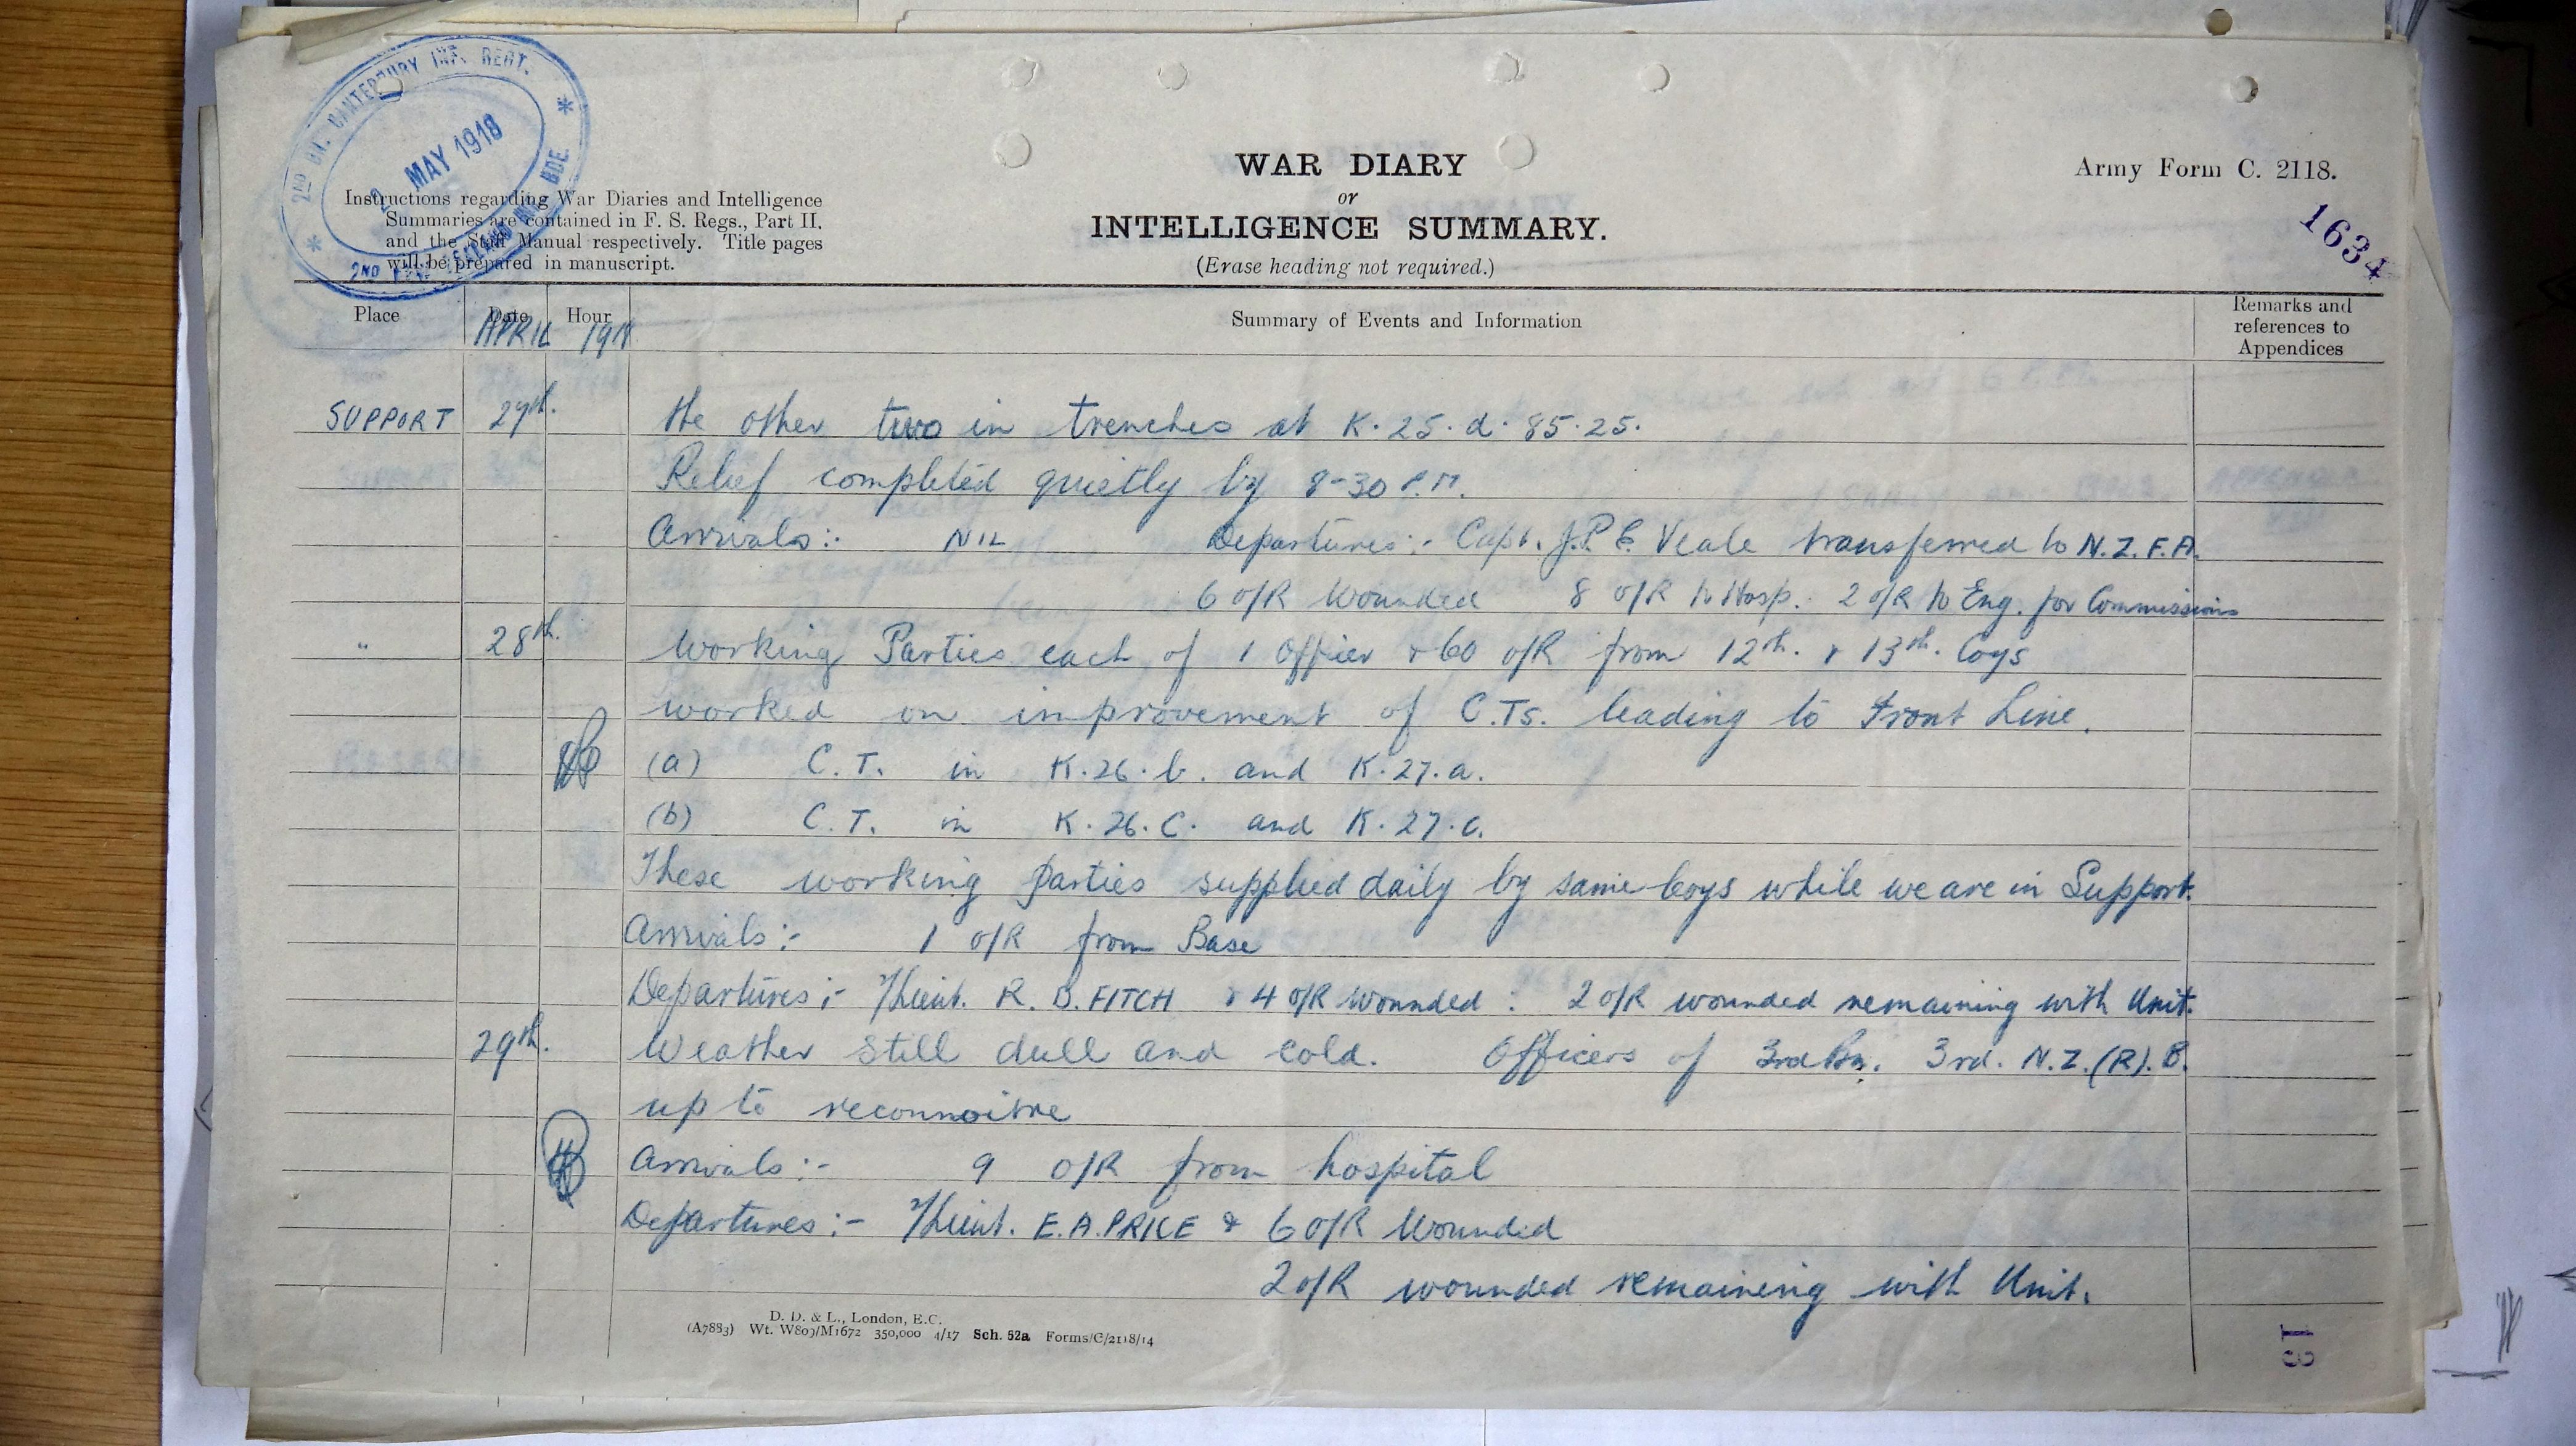 2ND BN. CANTERBURY INF. REGT.
2 MAY 1918
2ND NEW ZEALAND INF. BDE.
Instructions regarding War Diaries and Intelligence
Summaries are contained in F. S. Regs., Part II.
and the Staff Manual respectively. Title pages
will be prepared in manuscript.
WAR DIARY
or
INTELLIGENCE SUMMARY.
(Erase heading not required.)
Army Form C. 2118.
1634
Place Date Hour Summary of Events and Information Remarks and references to Appendices
APRIL 1918
SUPPORT 27th. the other two in trenches at K.25.d.85.25.
Relief completed quietly by 8-30 P.M.
Arrivals:- NIL Departures:- Capt. J.P.C. Veale transferred to N.Z.F.A.
6 O/R Wounded 8 O/R to Hosp. 2 O/R to Eng. for Commissions
" 28th. Working Parties each of 1 Officer & 60 O/R from 12th. & 13th. Coys
worked on improvement of C.Ts. leading to Front Line.
(a) C.T. in K.26.b. and K.27.a.
(b) C.T. in K.26.C. and K.27.c.
These working parties supplied daily by same Coys while we are in Support.
Arrivals:- 1 O/R from Base
Departures:- T/Lieut. R. B. FITCH & 4 O/R Wounded : 2 O/R wounded remaining with Unit.
29th. Weather still dull and cold. Officers of 3rd Bn. 3rd. N.Z.(R).B.
up to reconnoitre
Arrivals:- 9 O/R from hospital
Departures:- T/Lieut. E.A. PRICE & 6 O/R Wounded
2 O/R wounded remaining with Unit.
D. D. & L., London, E.C.
(A7883) Wt. W809/M1672 350,000 4/17 Sch. 52a Forms/C/2118/14
13